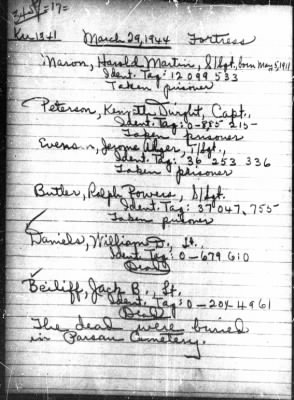 3454 =17=
Ku 1341 March 29, 1944 Fortress
Maron, Harold Martin, S/Sgt., born May 5, 1911
Ident. Tag: 12 099 533
Taken prisoner
Peterson, Kenneth Dwight, Capt.,
Ident. Tag: 0-885 215
Taken prisoner
Evens, Jerome Alger, T/Sgt.,
Ident. Tag: 36 253 336
Taken prisoner
Butler, Ralph Powers, S/Sgt.
Ident. Tag: 37 047.755
Taken prisoner
Daniels, William D., Lt.
Ident. Tag: 0-679 610
Dead
Beiliff, Jack B., Lt.
Ident. Tag: 0-204 4961
Dead
The dead were buried
in Parsau Cemetery.